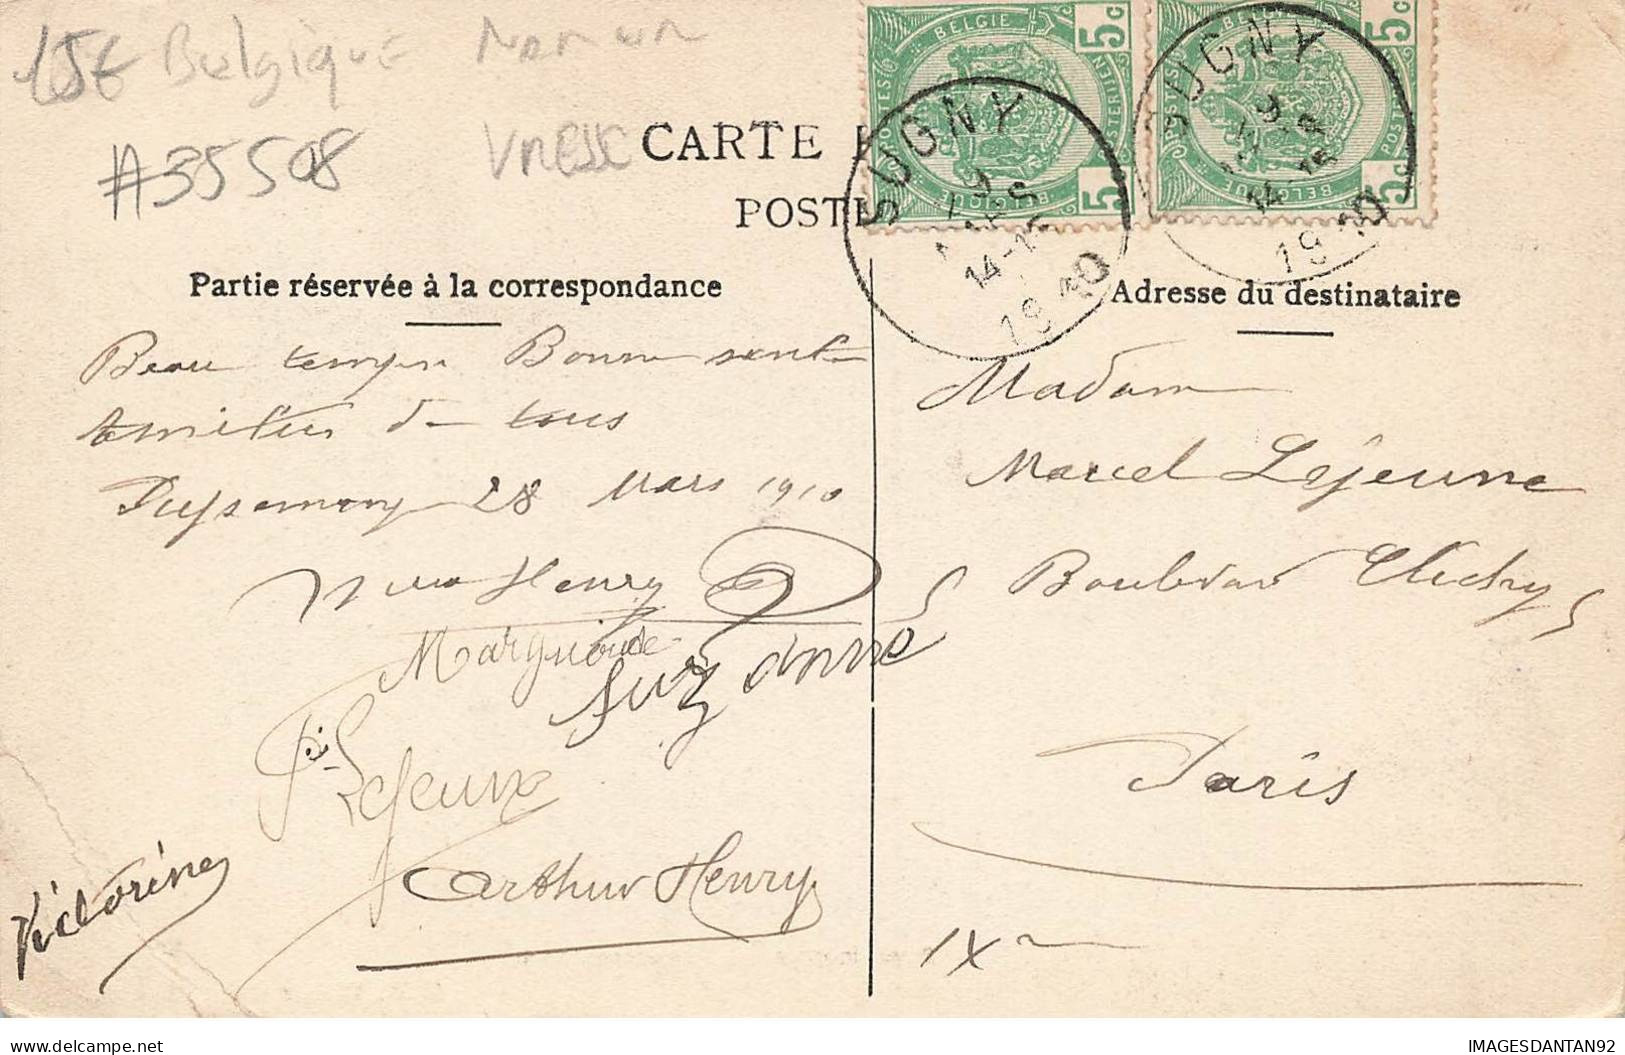 15€ Belgique Namur
#35508
Vresse
CARTE
POSTES BELGIE POSTERIJEN BELGIQUE 5c 5c
POSTES BELGIE POSTERIJEN BELGIQUE 5c 5c
SUGNY
14-15
1910
SUGNY
14-15
1910
Partie réservée à la correspondance
Adresse du destinataire
Beau temps Bonne santé
Amitiés de tous
Pussemange 28 Mars 1910
Henry
Marguerite
Suzanne
Lejeune
Arthur Henry
Victorine
Madame
Marcel Lejeune
Boulevard Clichy 5
Paris
IXme
IMAGESDANTAN92
delcampe.net